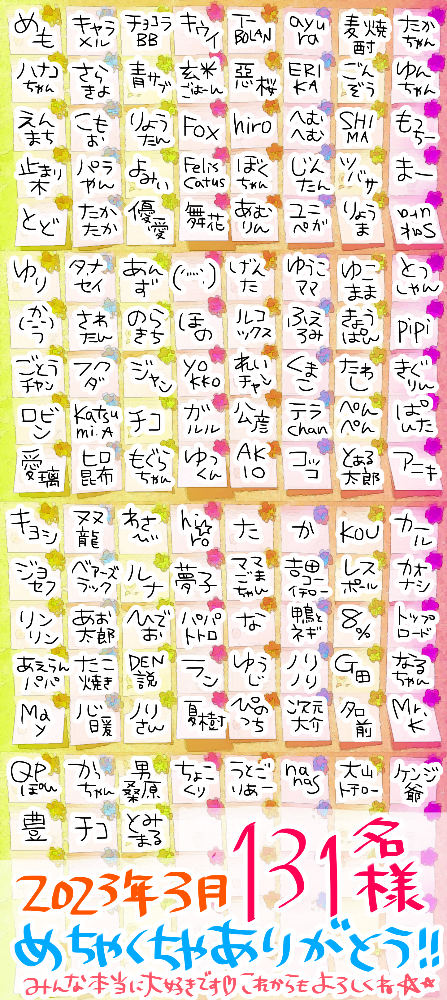 めも キャラメル チョコラBB キウイ T-BOLAN ayura 麦焼酎 たかちゃん
ハナコちゃん さらきよ 青サブ 玄米ごはーん 惡桜 ERIKA ごんぞう ゆんちゃん
えんまち こもお りょうたん Fox hiro へむへむ SHIMA もっちー
止まり木 パラやん よみぃ Felis Catus ぼくちゃん じんたん ツバサ まー
とど たかたか 優愛 舞花 あむりん ユニペガ りょうま
ゆり タナセイ あんず げんた ゆうこママ ゆーこまま とっしゃん
さわたん のらきち ほの ルコックス ふえろみ きょうぱん pipi
ごとうチャン フクダ ジャン yokko れいチャン くまこ たわし きぐりん
ロビン Katsumi.A チコ ガルル 公彦 テラchan ぺんぺん ぱんた
愛璃 ヒロ昆布 もぐらちゃん ゆっくん AKIO コッコ とある太郎 アニキ
キヨシ 双龍 hi☆ro た か KOU カール
ジョセフ ベアーズラック ルナ 夢子 ママごまちゃん 吉田コーイチロー レスポール カオナシ
リンリン あお太郎 ひでお パパトトロ な 鴨とネギ 8% トップロード
あえらんパパ たこ焼き DEN説 ラン ゆうじ ノリノリ G田 なるちゃん
May 心暖 ノリさん 夏樹 ぴのっち 次元大介 名前 Mr.K
QPぽん かっちゃん 男桑原 ちょこくり うとごりあー nanas 大山トテロー ケンジ爺
豊 チコ とみまる
2023年3月 131名様
めちゃくちゃありがとう!!
みんな本当に大好きです♡これからもよろしくね☆☆